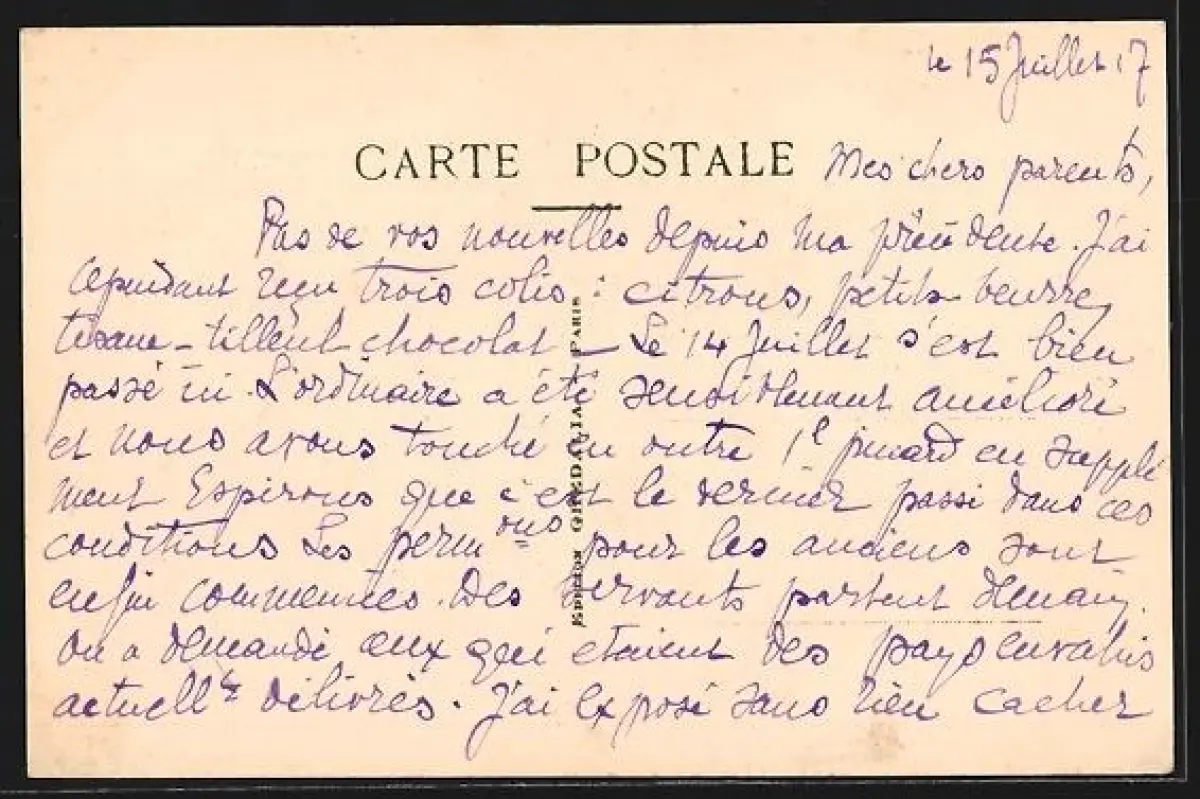 le 15 Juillet 17
CARTE POSTALE
Mes chers parents,
Pas de vos nouvelles depuis ma précédente. J'ai
cependant reçu trois colis : citrons, petits beurre,
tisane - tilleul chocolat - Le 14 Juillet s'est bien
passé ici. L'ordinaire a été sensiblement amélioré
et nous avons touché en outre 1l pinard en supplé
ment Espérons que c'est le dernier passé dans ces
conditions Les permons pour les anciens sont
enfin commencées. Des servants partent demain.
On a demandé ceux qui etaient des pays envahis
actuellt délivrés. J'ai exposé sans rien cacher
EDITION GIRDALIA PARIS